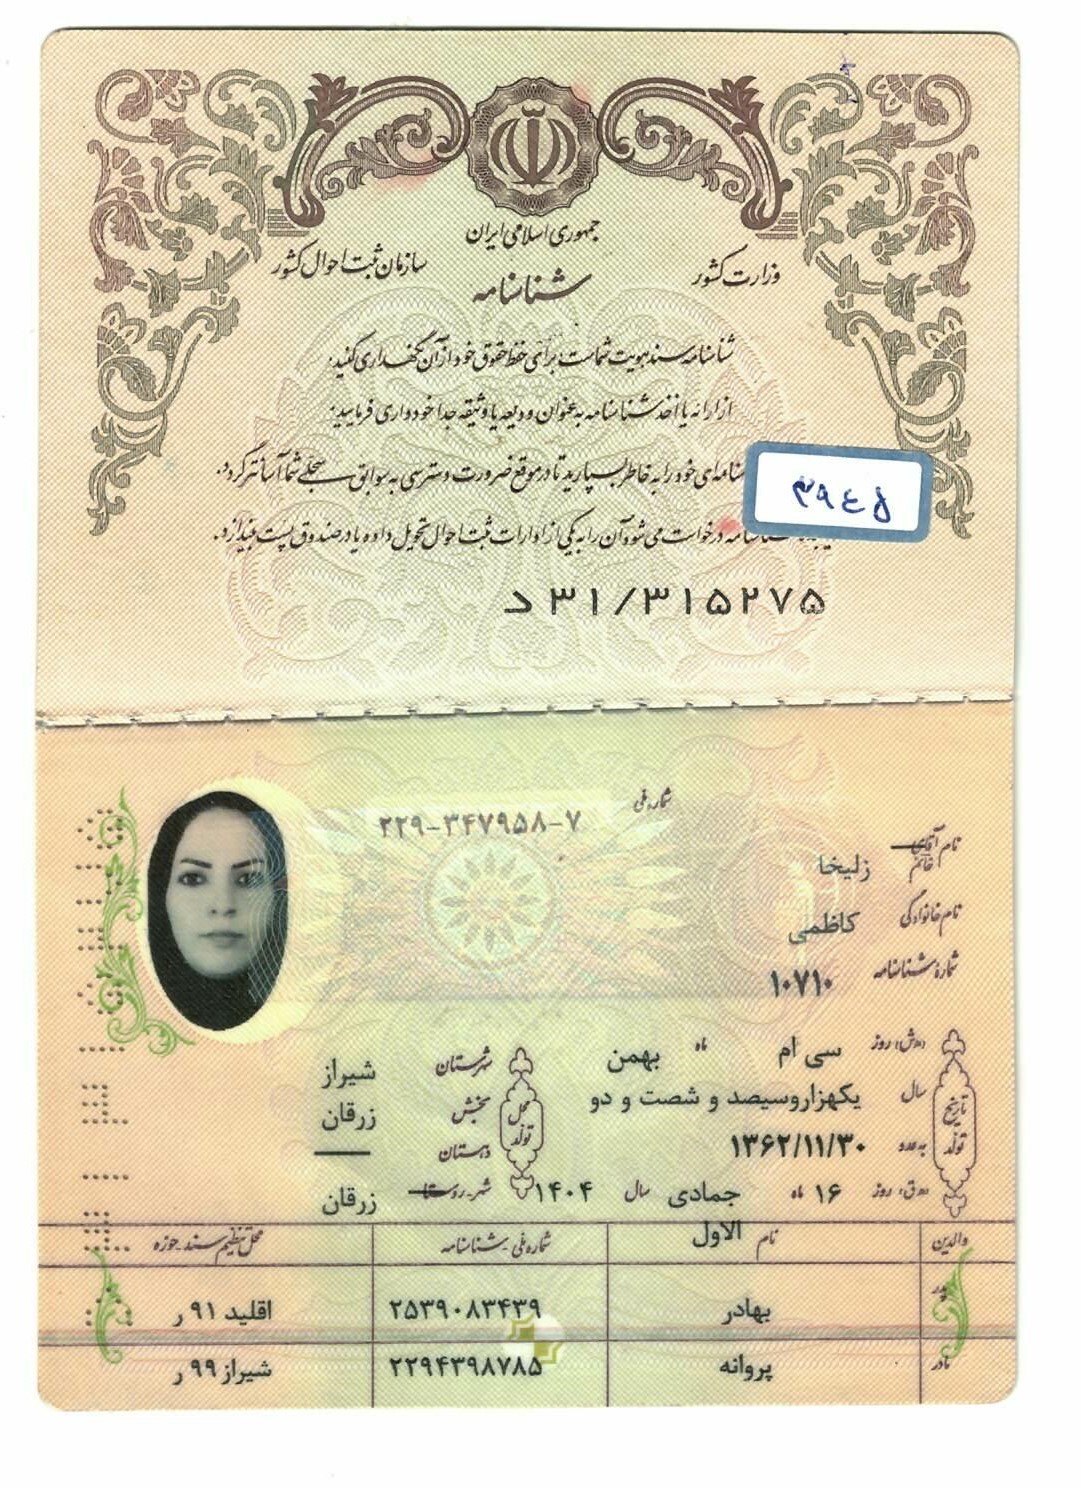 جمهوری اسلامی ایران
وزارت کشور
سازمان ثبت احوال کشور
شناسنامه
شناسنامه سند هویت شماست برای حفظ حقوق خود از آن نگهداری کنید.
از ارائه یا اخذ شناسنامه به عنوان ودیعه یا وثیقه جدا خودداری فرمایید.
نامه‌ای خود را به خاطر بسپارید تا در موقع ضرورت دسترسی به سوابق سجلی شما آسانتر گردد.
درخواست می شود آن را به یکی از ادارات ثبت احوال تحویل داده یا در صندوق پست بیندازد.
۳۹۴۵
د ۳۱/۳۱۵۲۷۵
شماره ملی ۲۲۹-۳۴۷۹۵۸-۷
نام آقای خانم زلیخا
نام خانوادگی کاظمی
شماره شناسنامه ۱۰۷۱۰
تاریخ تولد
(ه.ش) روز سی ام ماه بهمن
سال یکهزاروسیصد و شصت و دو
به عدد ۱۳۶۲/۱۱/۳۰
(ه.ق) روز ۱۶ ماه جمادی الاول سال ۱۴۰۴
محل تولد
شهرستان شیراز
بخش زرقان
دهستان
شهر-روستا زرقان
والدین نام شماره ملی-شناسنامه محل تنظیم سند-حوزه
پدر بهادر ۲۵۳۹۰۸۳۴۳۹ اقلید ۹۱ ر
مادر پروانه ۲۲۹۴۳۹۸۷۸۵ شیراز ۹۹ ر